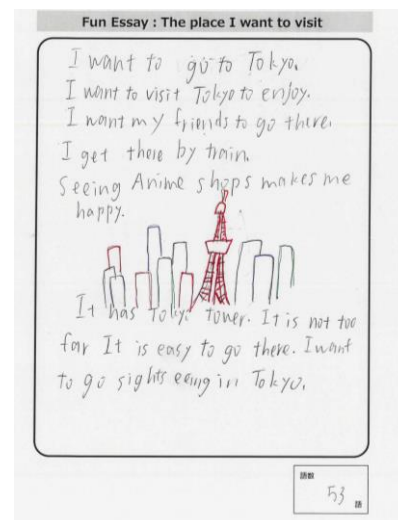 Fun Essay : The place I want to visit
I want to go to Tokyo.
I want to visit Tokyo to enjoy.
I want my friends to go there.
I get there by train.
Seeing Anime shops makes me
happy.
It has Tokyo tower. It is not too
far It is easy to go there. I want
to go sightseeing in Tokyo.
語数
53 語